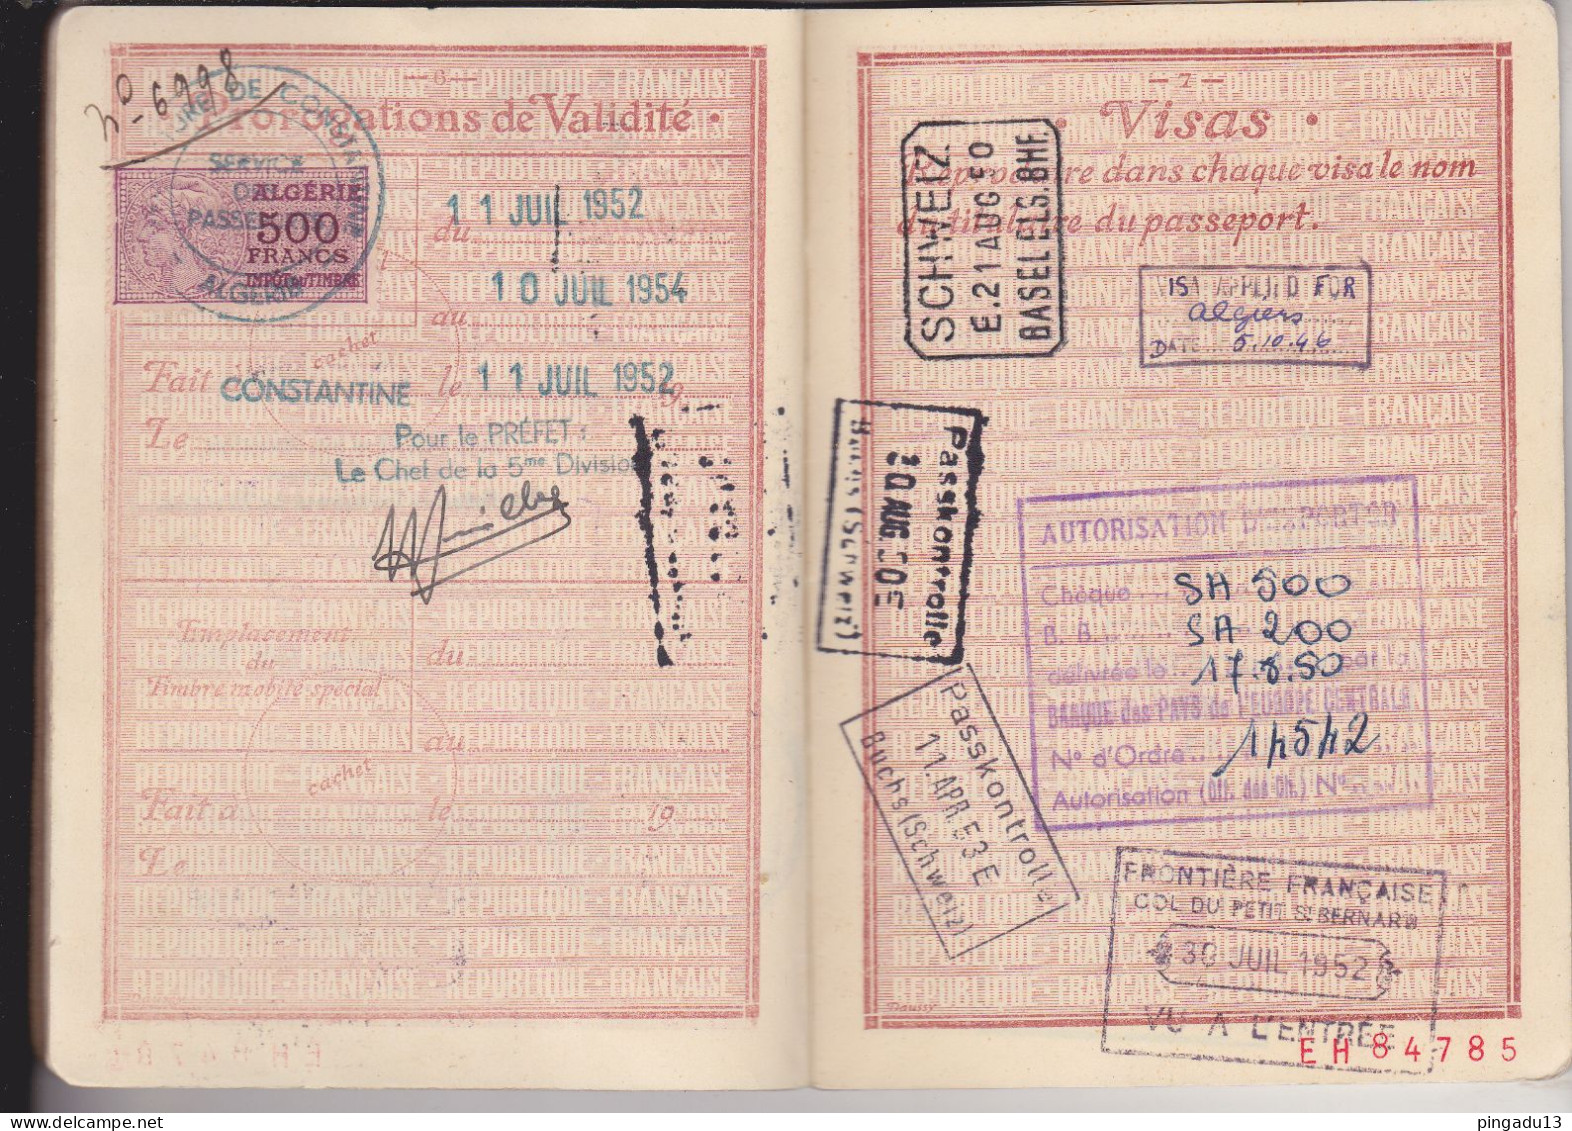 No 6998
— 6 —
Prorogations de Validité .
PRÉFECTURE DE CONSTANTINE
SERVICE
DES
PASSEPORTS
ALGÉRIE
ALGÉRIE
500
FRANCS
IMPÔT DU TIMBRE
du 11 JUIL 1952
au 10 JUIL 1954
cachet
Fait à CONSTANTINE le 11 JUIL 1952 19
Le
Pour le PRÉFET :
Le Chef de la 5me Division
Emplacement
du
Timbre mobile spécial
du
au
cachet
Fait à le 19
Le
— 7 —
· Visas ·
Reproduire dans chaque visa le nom
du titulaire du passeport.
SCHWEIZ
E. 21 AUG 50
BASEL ELS. BHF.
VISA APPLIED FOR
Algiers
DATE 5.10.46
Passkontrolle
20 AUG. 50 E
Buchs (Schweiz)
AUTORISATION D'EXPORTER
Chèque SA 500
B. B. SA 200
délivrée le 17.8.50 par la
BANQUE des PAYS de L'EUROPE CENTRALE
N° d'Ordre 14542
Autorisation (Off. des Ch.) N°
Passkontrolle
11. APR 53 E
Buchs (Schweiz)
FRONTIÈRE FRANÇAISE
COL DU PETIT ST BERNARD
30 JUIL 1952
VU A L'ENTRÉE
Daussy
EH 84785
pingadu13